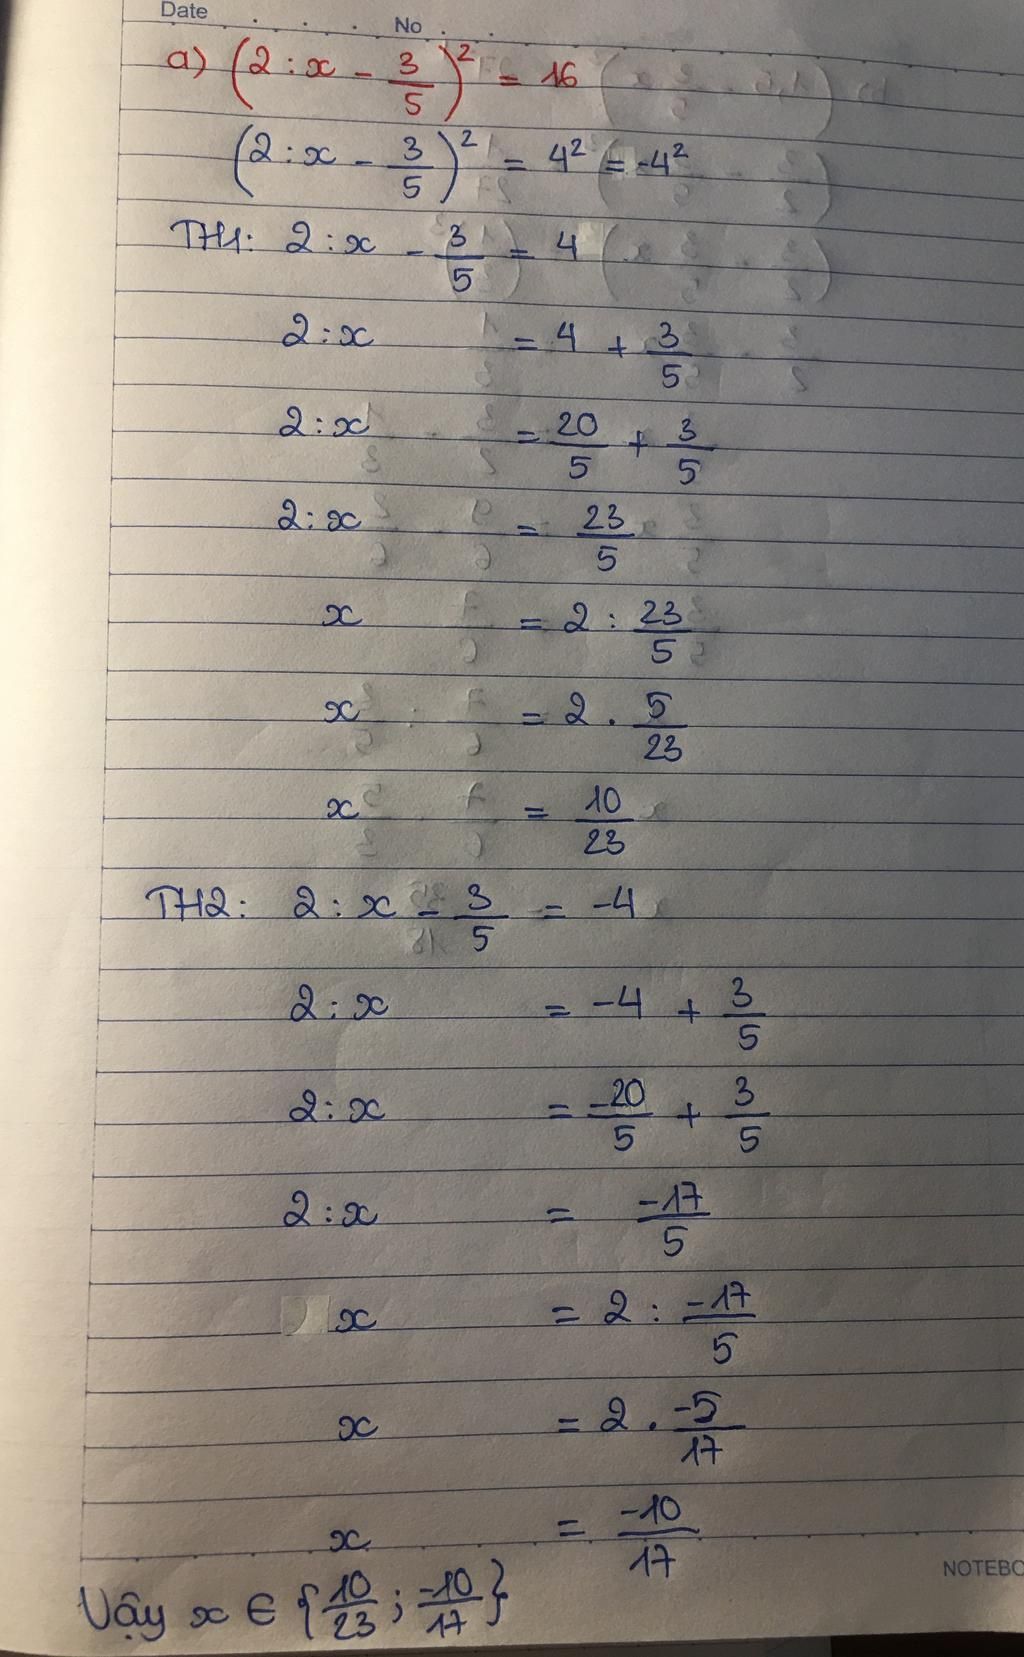 Date No
a) (2 : x - 3/5)² = 16
(2 : x - 3/5)² = 4² = -4²
TH1: 2 : x - 3/5 = 4
2 : x = 4 + 3/5
2 : x = 20/5 + 3/5
2 : x = 23/5
x = 2 : 23/5
x = 2 . 5/23
x = 10/23
TH2: 2 : x - 3/5 = -4
2 : x = -4 + 3/5
2 : x = -20/5 + 3/5
2 : x = -17/5
x = 2 : -17/5
x = 2 . -5/17
x = -10/17
NOTEBO
Vậy x ∈ {10/23 ; -10/17}